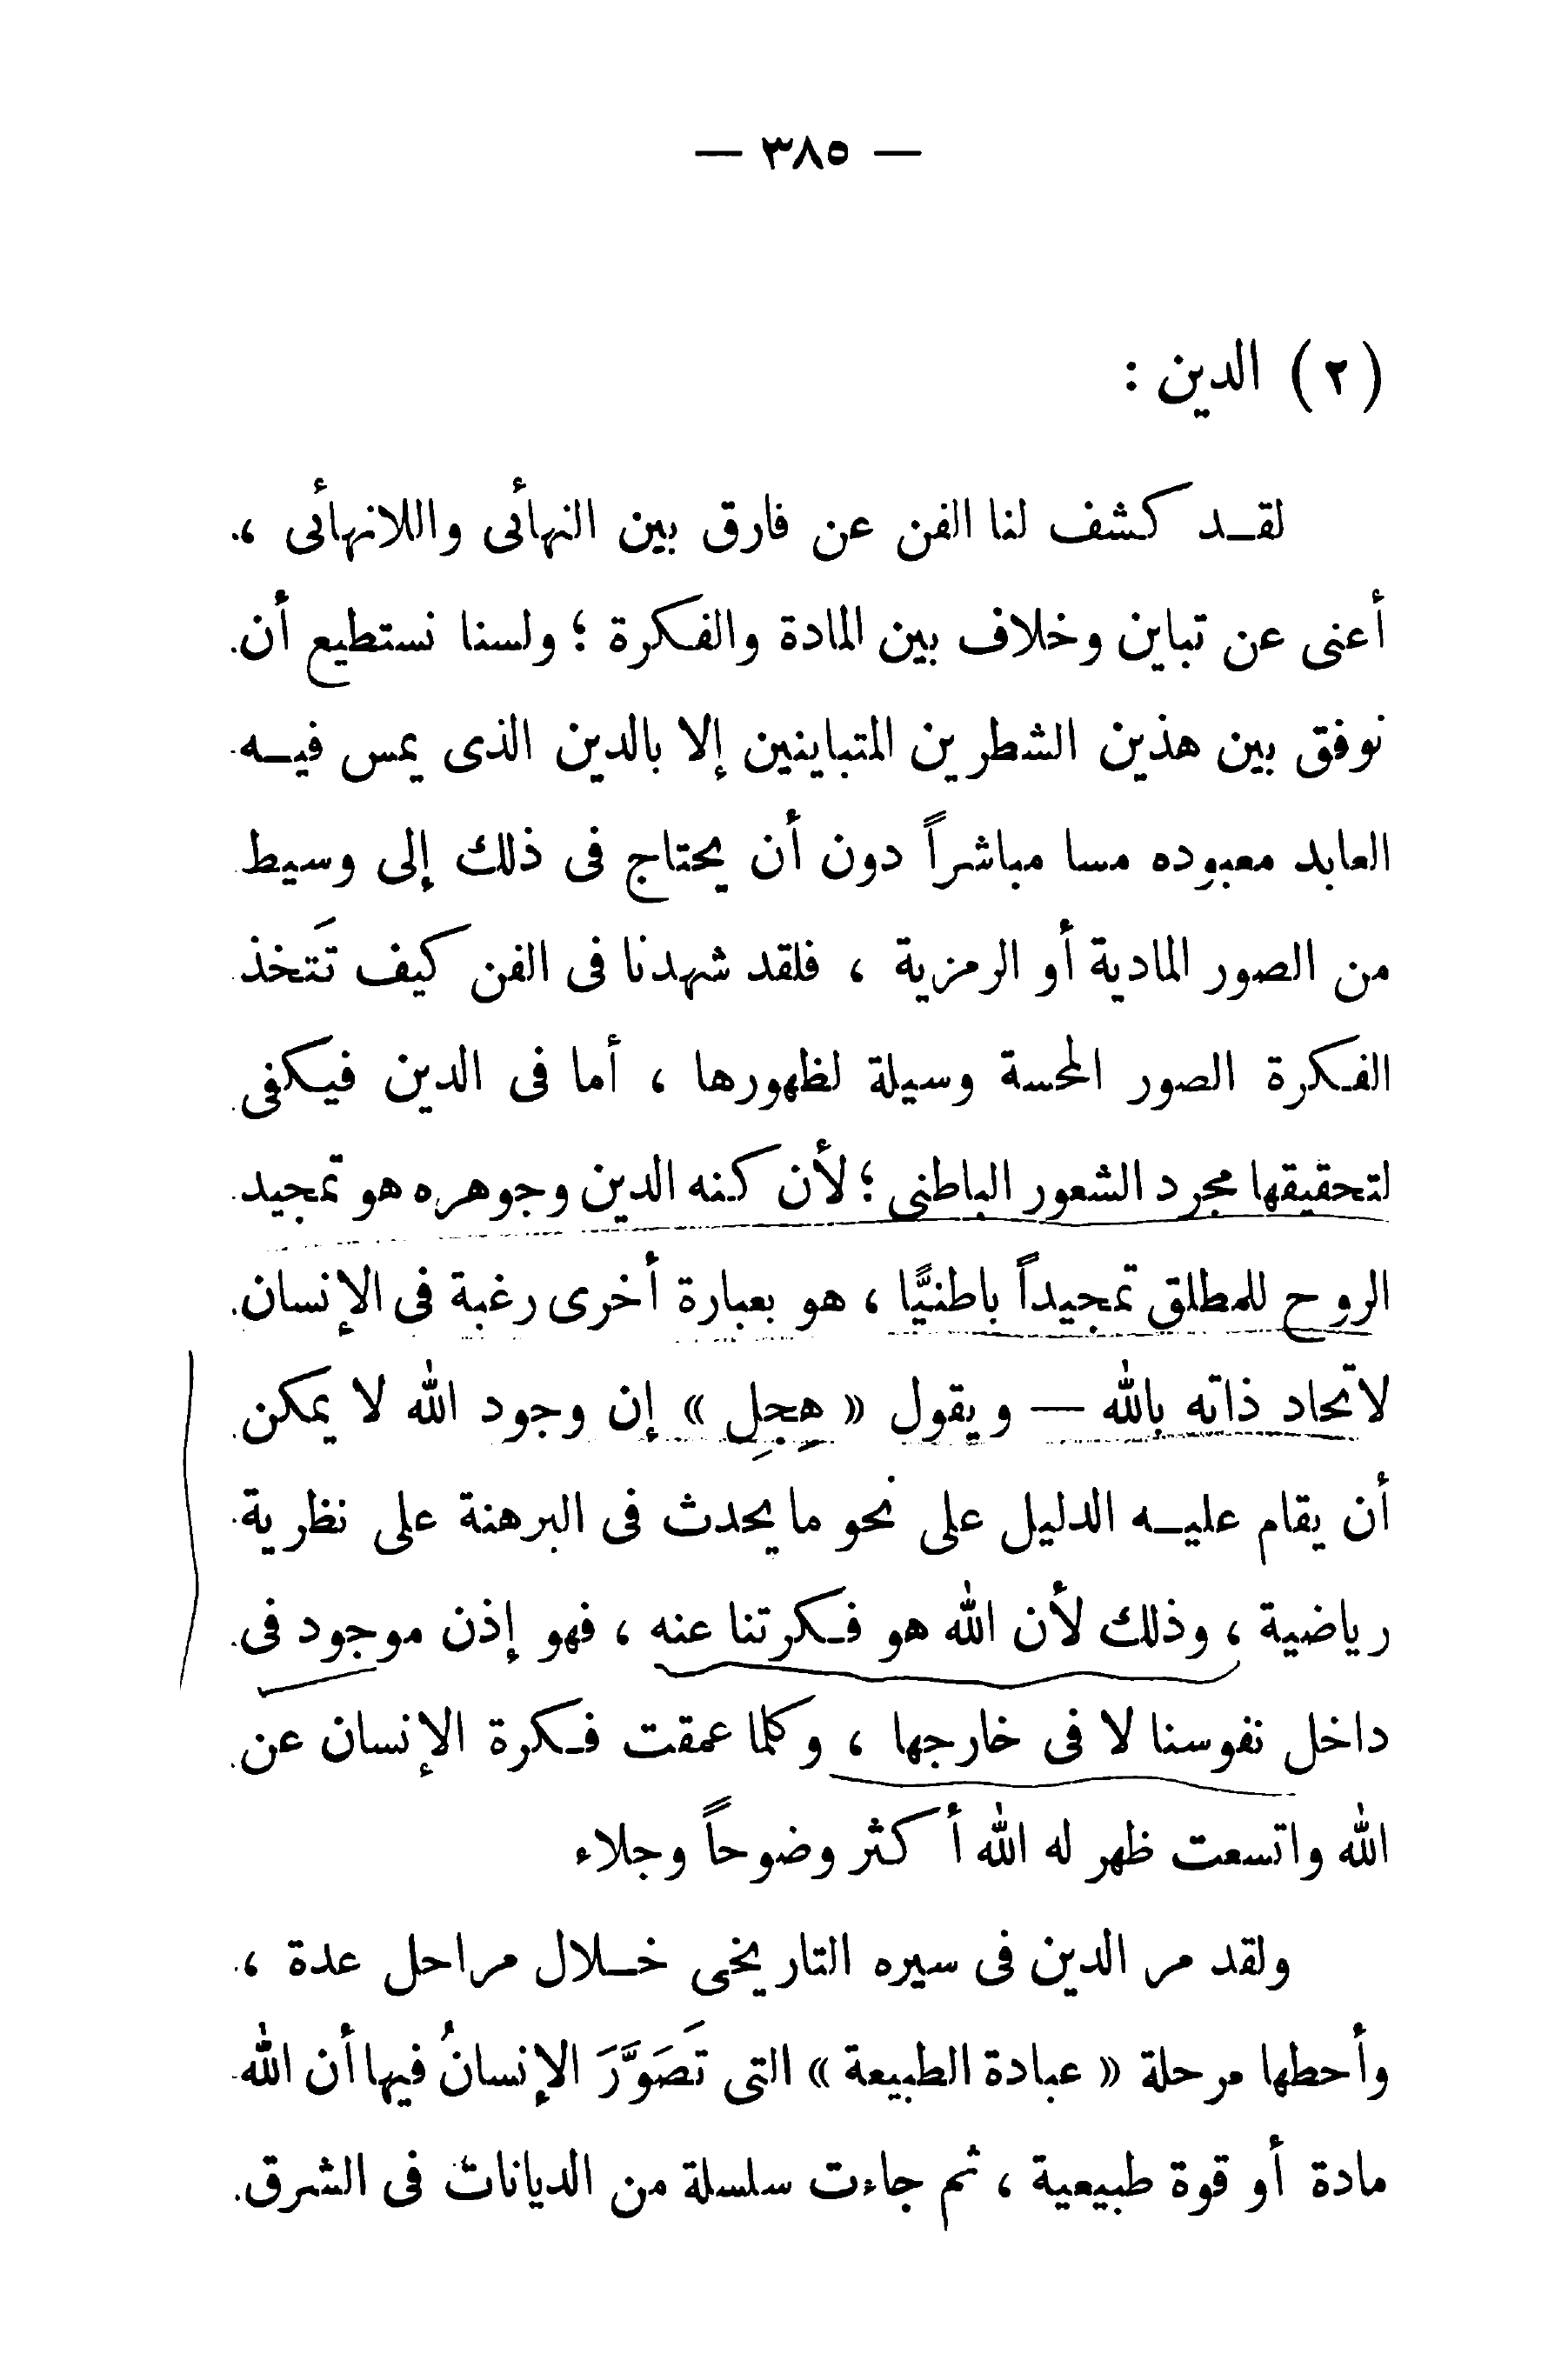 — ٣٨٥ —
(٢) الدين :
لقـد كشف لنا الفن عن فارق بين النهائى واللانهائى ،
أعنى عن تباين وخلاف بين المادة والفكرة ؛ ولسنا نستطيع أن
نوفق بين هذين الشطرين المتباينين إلا بالدين الذى يمس فيـه
العابد معبوده مسا مباشراً دون أن يحتاج فى ذلك إلى وسيط
من الصور المادية أو الرمزية ، فلقد شهدنا فى الفن كيف تَتخذ
الفكرة الصور المحسة وسيلة لظهورها ، أما فى الدين فيكفى
لتحقيقها مجرد الشعور الباطنى ؛ لأن كنه الدين وجوهره هو تمجيد
الروح للمطلق تمجيداً باطنيًّا ، هو بعبارة أخرى رغبة فى الإنسان
لاتحاد ذاته بالله — ويقول « هِجِل » إن وجود الله لا يمكن
أن يقام عليـه الدليل على نحو ما يحدث فى البرهنة على نظرية
رياضية ، وذلك لأن الله هو فـكرتنا عنه ، فهو إذن موجود فى
داخل نفوسنا لا فى خارجها ، وكلما عمقت فـكرة الإنسان عن
الله واتسعت ظهر له الله أكثر وضوحاً وجلاء
ولقد مر الدين فى سيره التاريخى خـلال مراحل عدة ،
وأحطها مرحلة « عبادة الطبيعة » التى تَصَوَّرَ الإنسانُ فيها أن الله
مادة أو قوة طبيعية ، ثم جاءت سلسلة من الديانات فى الشرق